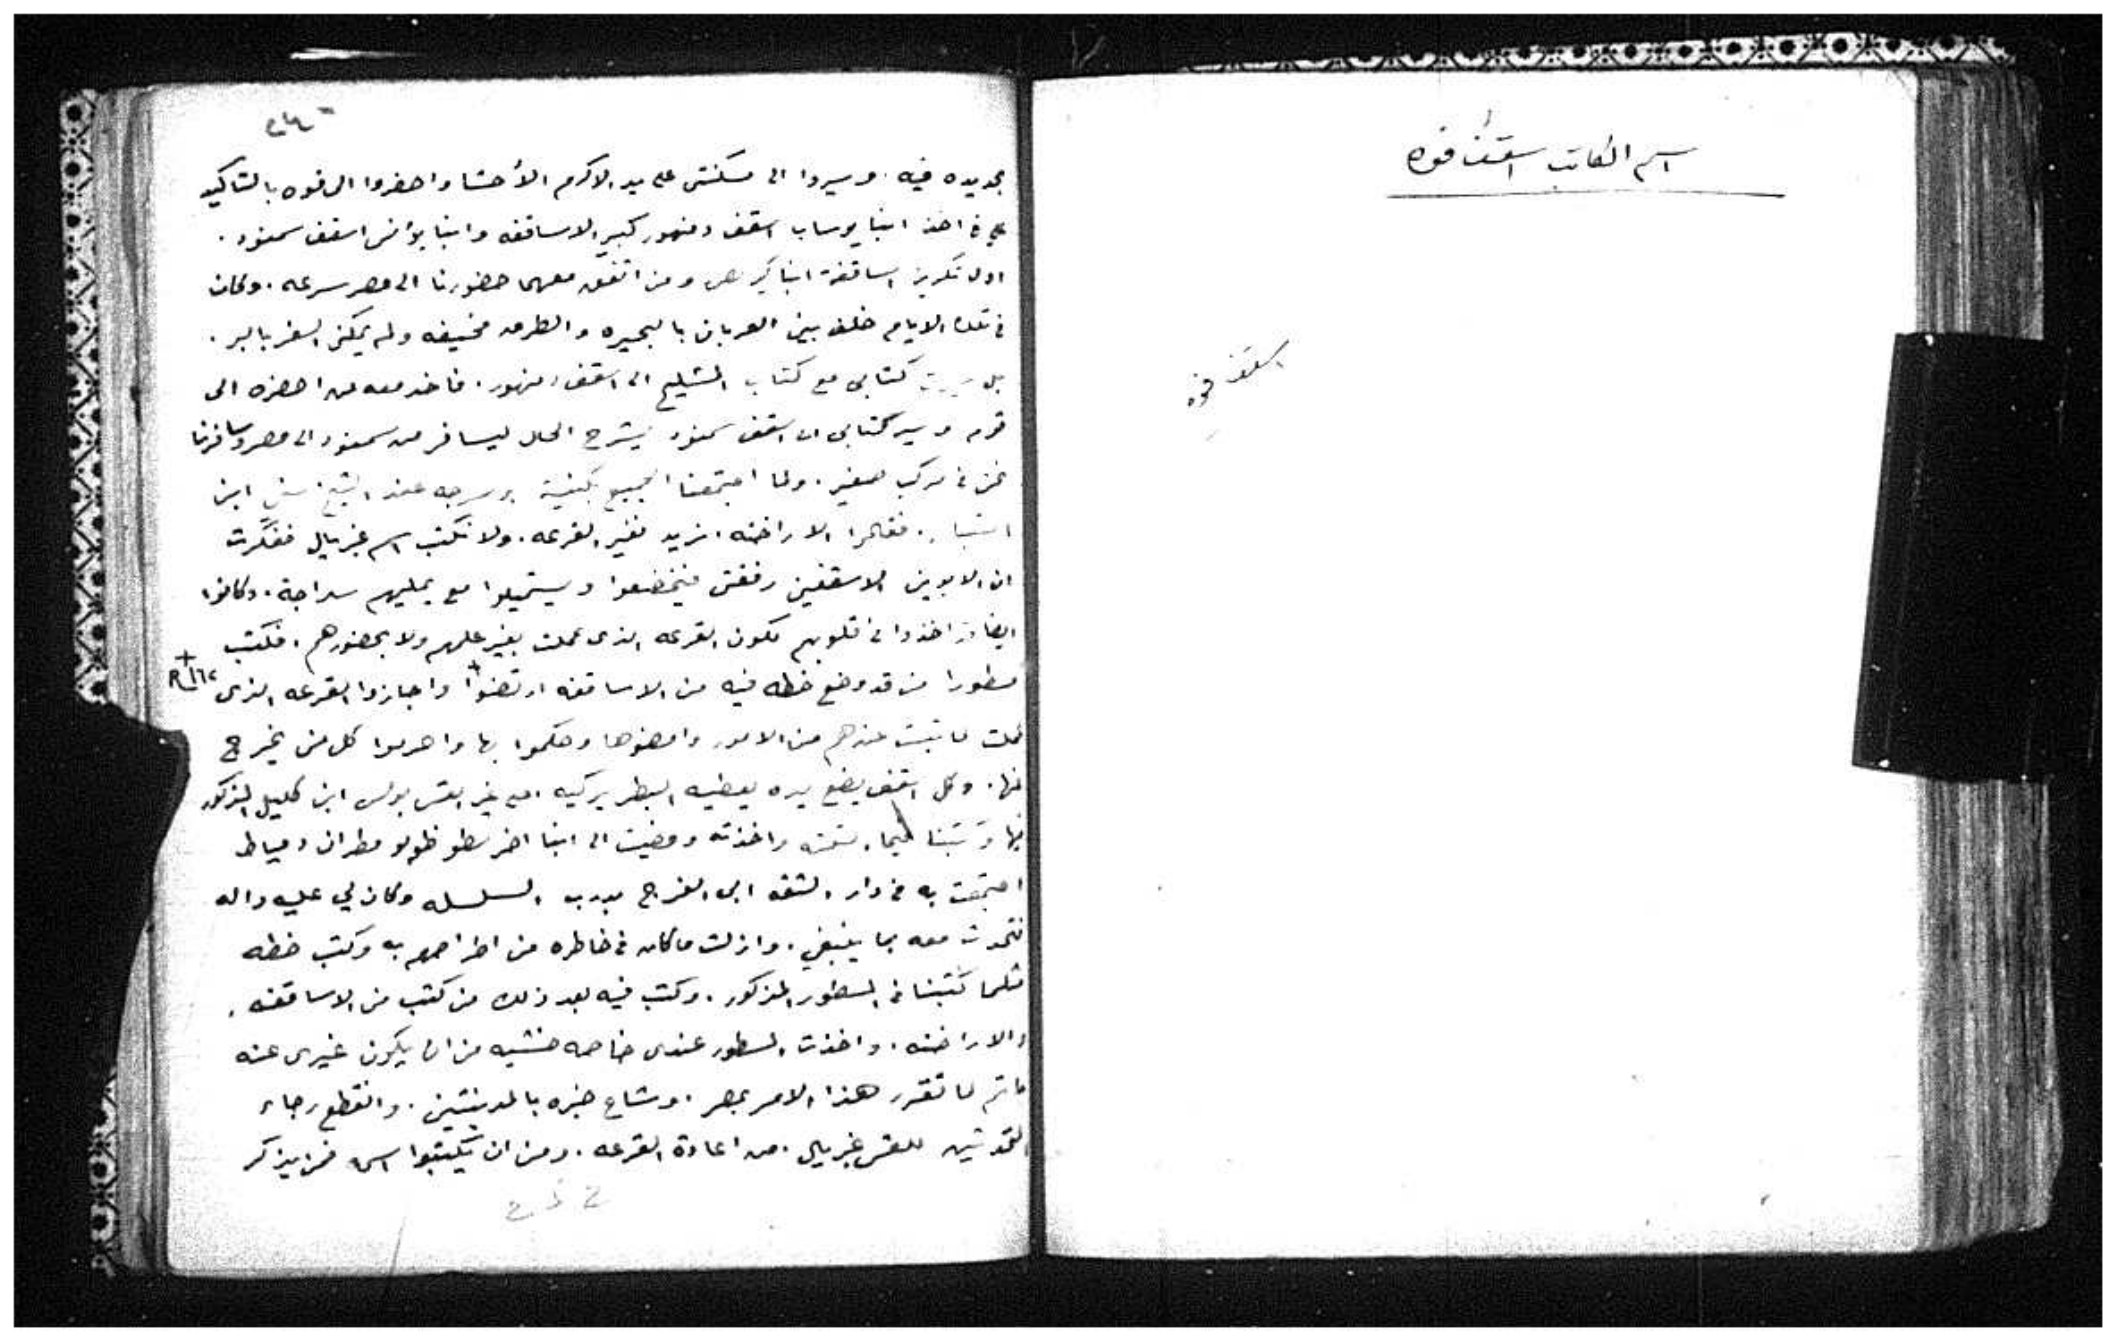 اسم الكاتب اسقف فوه
اسقف فوه
بجديده فيه . وسيروا الى مسكنتى على يد الاكرم الأحشا واحضروا الى فوه بالتاكيد
على فى اخذ انبا يوساب اسقف دمنهور كبير الاساقفه وانبا يؤنس اسقف سمنود .
اول تكريز اساقفة انبا كيرلص ومن اتفق معهما حضورنا الى مصر سرعه . وكان
فى تلك الايام خلف بين العربان بالبحيره والطرق مخيفه ولم يمكن السفر بالبر .
بل كتابى مع كتاب الى اسقف دمنهور . فاخد معه من احضره الى
فوه وسير كتابى الى اسقف سمنود يشرح الحال ليسافر من سمنود الى مصر وسافرنا
نحن فى مركب صغير . ولما اجتمعنا الجميع بكنيسة بو سرجه عند الشيخ ابن
فقالوا الاراخنه . نريد نغير القرعه . ولا نكتب اسم غبريال ففكرت
ان الابوين الاسقفين رفقتى فيخضعوا ويستميلوا مع يمليهم سداجة . وكانوا
ايضا اخذوا فى قلوبهم لكون القرعه الذى عملت بغير علمهم ولا بحضورهم . فكتب
مسطورا من قد وضع خطه فيه من الاساقفه ارتضوا واجازوا القرعه الذى
عملت لما تبت عندهم من الامور وامضوها وحكموا بها واحرموا كل من يخرج
عنها . وكل اسقف يضع يده يعطيه البطريركيه غير القس بولس ابن كليل المذكور
فيها واخذته ومضيت الى انبا اخرسطوظولو مطران دمياط
اجتمعت به فى دار الثقه ابى الفرج بدرب السلسله وكان لي عليه داله
فتحدث معه بما ينبغي . وازلت ما كان فى خاطره من اطراحهم به وكتب خطه
مثلما كتبنا فى المسطور المذكور . وكتب فيه بعد ذلك من كتب من الاساقفه .
والاراخنه . واخذت المسطور عندى خاصه خشيه من ان يكون غيرى عنه
ما تم لما تقرر هذا الامر بمصر . وشاع خبره بالمدينتين . وانقطع رجاء
المتحدثين للقس غبريال . من اعادة القرعه . ومن ان يكتبوا فمن يذكر